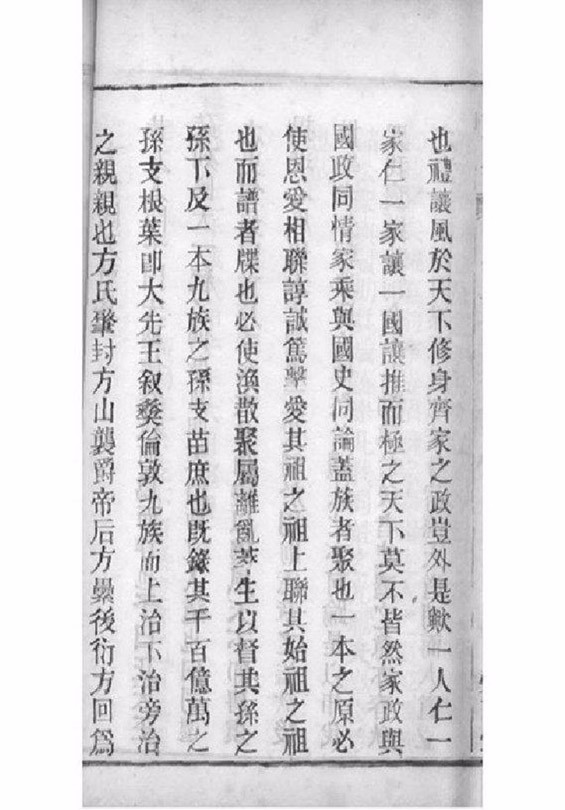 也禮讓風於天下修身齊家之政豈外是歟一人仁一
家仁一家讓一國讓推而極之天下莫不皆然家政與
國政同情家乘與國史同論蓋族者聚也一本之原必
使恩愛相聯諄誠篤摯愛其祖之祖上聯其始祖之祖
也而譜者牒也必使渙散聚屬離亂萃生以督其孫之
孫下及一本九族之孫支苗庶也旣錄其千百億萬之
孫支根葉卽大先王叙彝倫敦九族而上治下治旁治
之親親也方氏肇封方山襲爵帝后方纍後衍方回爲